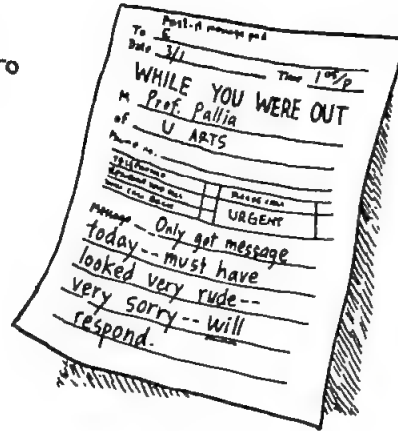 ro
Post-it message pad
To E
Date 3/1 Time 1 05/p
WHILE YOU WERE OUT
M Prof. Pallia
of U ARTS
Phone no.
TELEPHONED PLEASE CALL
WILL CALL BACK URGENT
Message Only got message
today -- must have
looked very rude --
very sorry -- will
respond.